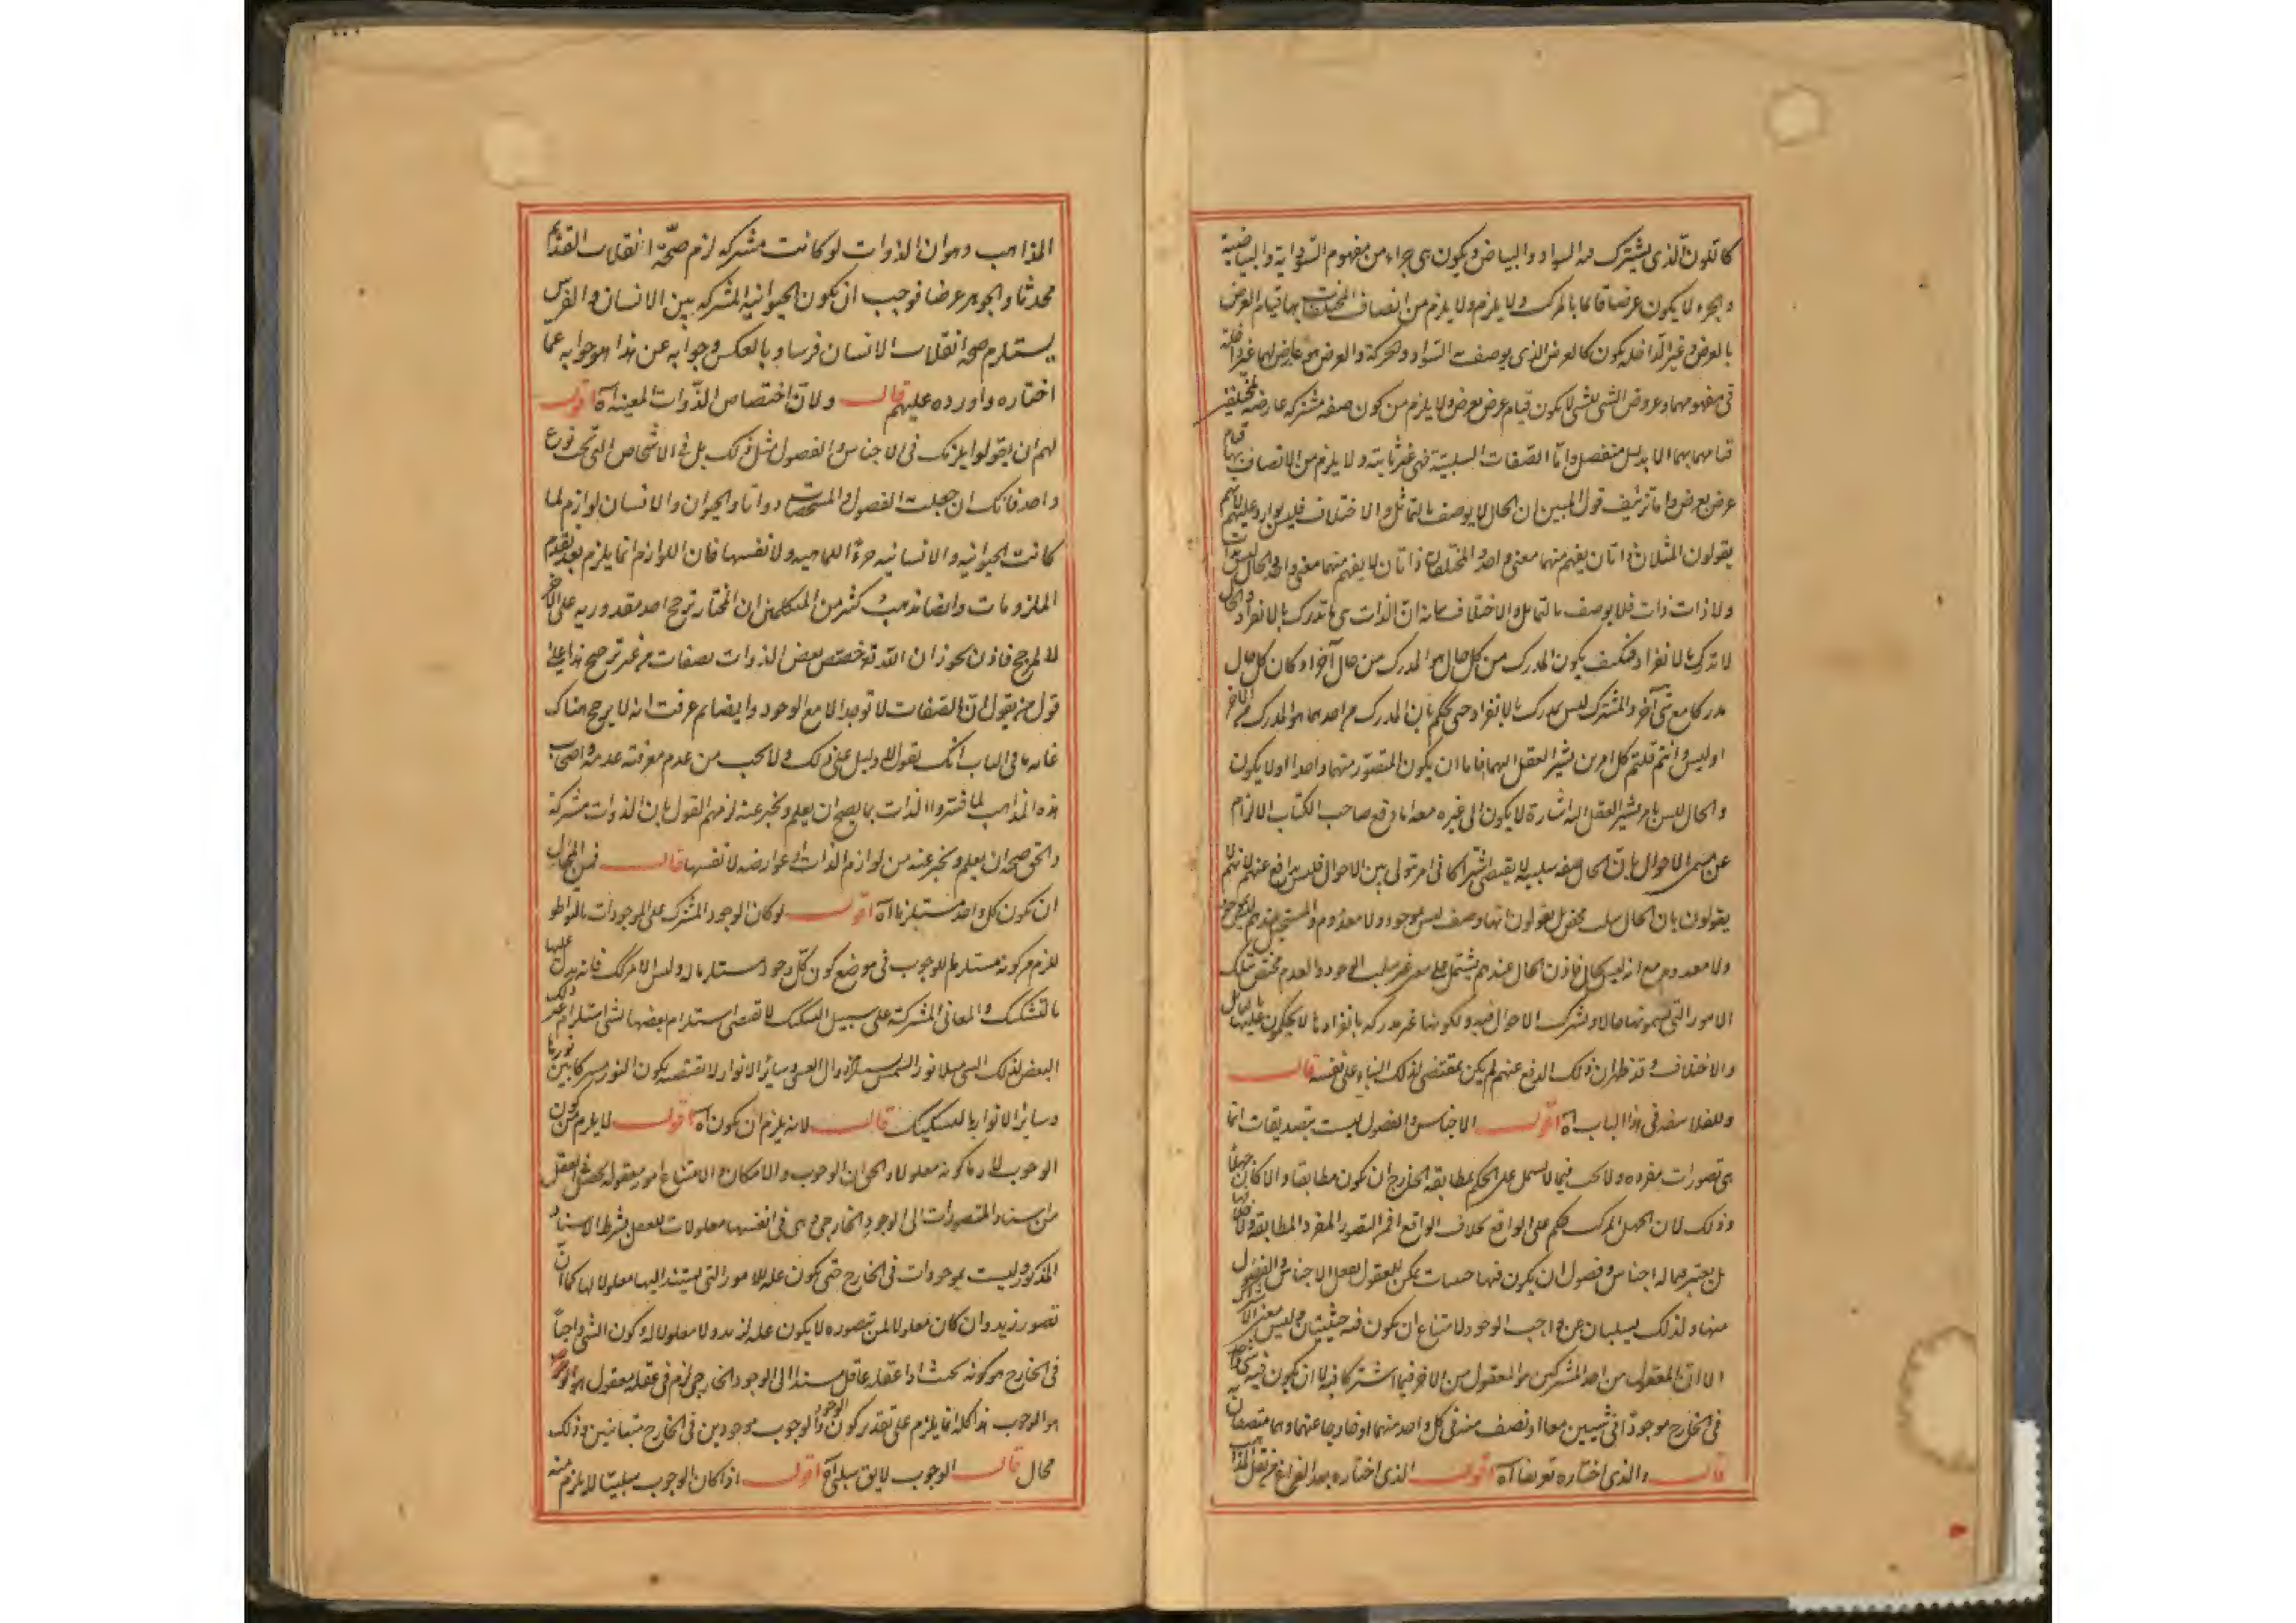 كاللون الذى يشترك فيه السواد والبياض ويكون هى جزاء من مفهوم السوادية والبياضية
والجزء لا يكون عرضا قائما بالمركب ولا يلزم ولا يلزم من اتصاف المختلفات بها قيام العرض
بالعرض وغير الداخلة يكون كالعرض الذى يوصف به السواد والحركة والعرض هو عارض لهما غير داخلة
فى مفهومهما وعروض الشىء للشىء لا يكون قيام عرض بعرض ولا يلزم من كون صفة مشتركة عارضة لمختلفين
قيامها بهما الا بدليل منفصل واما الصفات السلبية فهى غير ثابتة ولا يلزم من الاتصاف بها قيام
عرض بعرض واما تزئيف قول المثبتين ان الحال لا يوصف بالتماثل والاختلاف فليس بوارد عليهم لانهم
يقولون المثلان ذاتان يفهم منهما معنى واحد والمختلفان ذاتان لا يفهم منهما معنى واحد والحال ليست بذات
ولا ذات ذات فلا يوصف بالتماثل والاختلاف بيانه ان الذات هى ما تدرك بالانفراد والحال
لا تدرك بالانفراد فكيف يكون المدرك من كل حال هو المدرك من حال آخر او كان كل حال
مدركا مع شىء آخر والمشترك ليس بمدرك بالانفراد حتى يحكم بان المدرك من احدهما هو المدرك من الآخر
او ليس وانتم قلتم كل امرين يشير العقل اليهما فاما ان يكون المتصور منهما واحدا او لا يكون
والحال ليس بامر يشير العقل اليه اشارة لا يكون الى غيره معه اما دفع صاحب الكتاب الالزام
عن مثبتى الاحوال بان الحال صفة سلبية لا يقتضى اشتراكا فى امر ثبوتى بين الاحوال فليس بدافع عنهم لانهم لا
يقولون بان الحال سلب محض بل يقولون انها وصف ليس بموجود ولا معدوم والمستحيل عندهم ليس بموجود
ولا معدوم مع انه ليس بحال فاذن الحال عندهم يشتمل على معنى غير سلب الوجود والعدم مختص بتلك
الامور التى يسمونها حالا وتشترك الاحوال فيه ولكونها غير مدركة بانفرادها لا يحكمون عليها بالتماثل
والاختلاف وقد ظهر ان ذلك الدفع عنهم لم يكن بمقتضى لذلك البناء على نفسه قال
وللفلاسفة فى هذا الباب اه اقول الاجناس والفصول ليست بتصديقات انما
هى تصورات مفردة ولا يجب فيما لا يشتمل على الحكم مطابقة الخارج ان يكون مطابقا والا كان جهلا
وذلك لان الجهل المركب حكم على الواقع بخلاف الواقع اقم التصور المفرد المطابقة ولا
بل يعتبر فيما له اجناس وفصول ان يكون فيها حيثيات يمكن للعقول تعقل الاجناس والفصول
منها ولذلك يسلبان عن واجب الوجود لامتناع ان يكون فيه حيثيتان وليس معنى الاشتراك
الا ان المعقول من احد المشتركين هو المعقول من الآخر فيما اشتركا فيه لا ان يكون فيه شىء واحد
فى الخارج موجودا فى شيئين معا او نصف منه فى كل واحد منهما او خارجا عنهما وهما متصفان
قال والذى اختاره تعريضا اه اقول الذى اختاره بعد الفراغ من نقل المذاهب
المذاهب وهو ان الذوات لو كانت مشتركة لزم صحة انقلاب القديم
محدثا والجوهر عرضا فوجب ان يكون الحيوانية المشتركة بين الانسان والفرس
يستلزم صحة انقلاب الانسان فرسا وبالعكس وجوابه عن هذا هو جوابه عما
اختاره واورده عليهم قال ولان اختصاص الذوات المعينة اه اقول
لهم ان يقولوا يلزمك فى الاجناس والفصول مثل ذلك بل فى الاشخاص التى تحت نوع
واحد فانك ان جعلت الفصول والمشخصات ذواتا والحيوان والانسان لوازم لما
كانت الحيوانية والانسانية جزءا للماهية ولا نفسها فان اللوازم انما يلزم بعد تقدم
الملزومات وايضا مذهب كثير من المتكلمين ان المختار يرجح احد مقدوريه على الآخر
لا لمرجح فاذن يجوز ان الله تع خصص بعض الذوات بصفات من غير ترجيح هذا على
قول من يقول ان الصفات لا توجد الا مع الوجود وايضا لم عرفت انه لا يرجح هناك
غاية ما فى الباب انك تقول لا دليل على ذلك ولا يجب من عدم معرفته عدمه واصحاب
هذه المذاهب لما فسروا الذات بما يصح ان يعلم ويخبر عنه لزمهم القول بان الذوات مشتركة
والحق صحة ان يعلم ويخبر عنه من لوازم الذات او عوارضه لا نفسها قال فمن المحال
ان يكون كل واحد مستلزما اه اقول لو كان الوجود المشترك على الموجودات بالتواطؤ
للزم من كونه مستلزما للوجوب فى موضع كون كل وجود مستلزما له وليس الامر كك فانه يدل عليها
بالتشكيك والمعانى المشتركة على سبيل التشكيك لا تقتضى استلزام بعضها لشىء استلزام غير ذلك
البعض لذلك الشىء مثلا نور الشمس يستلزم زوال العشى وسائر الانوار لا تقتضيه بكون النور مشتركا بين نورها
وسائر الانوار بالتشكيك قال لانه يلزم ان يكون اه اقول لا يلزم من كون
الوجوب لازما كونه معلولا والحق ان الوجوب والامكان والامتناع امور معقولة يحصل فى العقل
من اسناد المتصورات الى الوجود الخارجى وهى فى انفسها معلولات للعقل بشرط الاسناد
المذكور وليست بموجودات فى الخارج حتى يكون علة للامور التى يستند اليها معلولا لها كما ان
تصور زيد وان كان معلولا لمن تصوره لا يكون علة لزيد ولا معلولا له وكون الشىء واجبا
فى الخارج هو كونه بحيث اذا عقله عاقل مسندا الى الوجود الخارجى لزم فى عقله معقول
هو الوجوب هذا كله انما يلزم على تقدير كون الوجود والوجوب موجودين فى الخارج متباينين وذلك
محال قال الوجوب لا يق سلبى اه اقول اذا كان الوجوب سلبيا لا يلزم منه